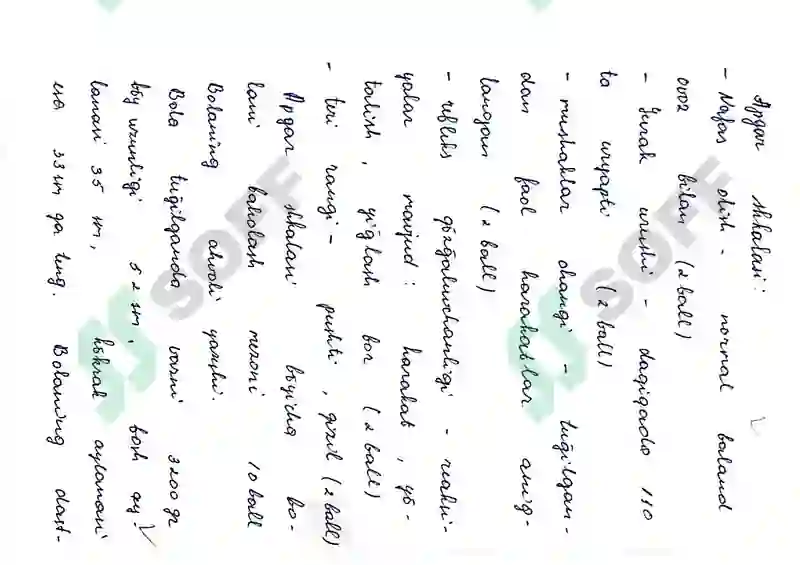 Apgar shkalasi:
- Nafas olish - normal baland
ovoz bilan (2 ball)
- Yurak urushi - daqiqada 110
ta uryapti (2 ball)
- mushaklar ohangi - tug'ilgan-
dan faol harakatlar aniq-
langan (2 ball)
- refleks qo'zg'aluvchanligi - reaksi-
yalar mavjud: harakat, yo'-
talish, yig'lash bor (2 ball)
- teri rangi - pushti, qizil (2 ball)
Apgar shkalasi bo'yicha bo-
lani baholash mezoni 10 ball
Bolaning ahvoli yaxshi.
Bola tug'ilganda vazni 3200 gr
bo'y uzunligi 52 sm, bosh ay-
lanasi 35 sm, ko'krak aylanasi
esa 33 sm ga teng. Bolaning dast-
SOFF
SOFF